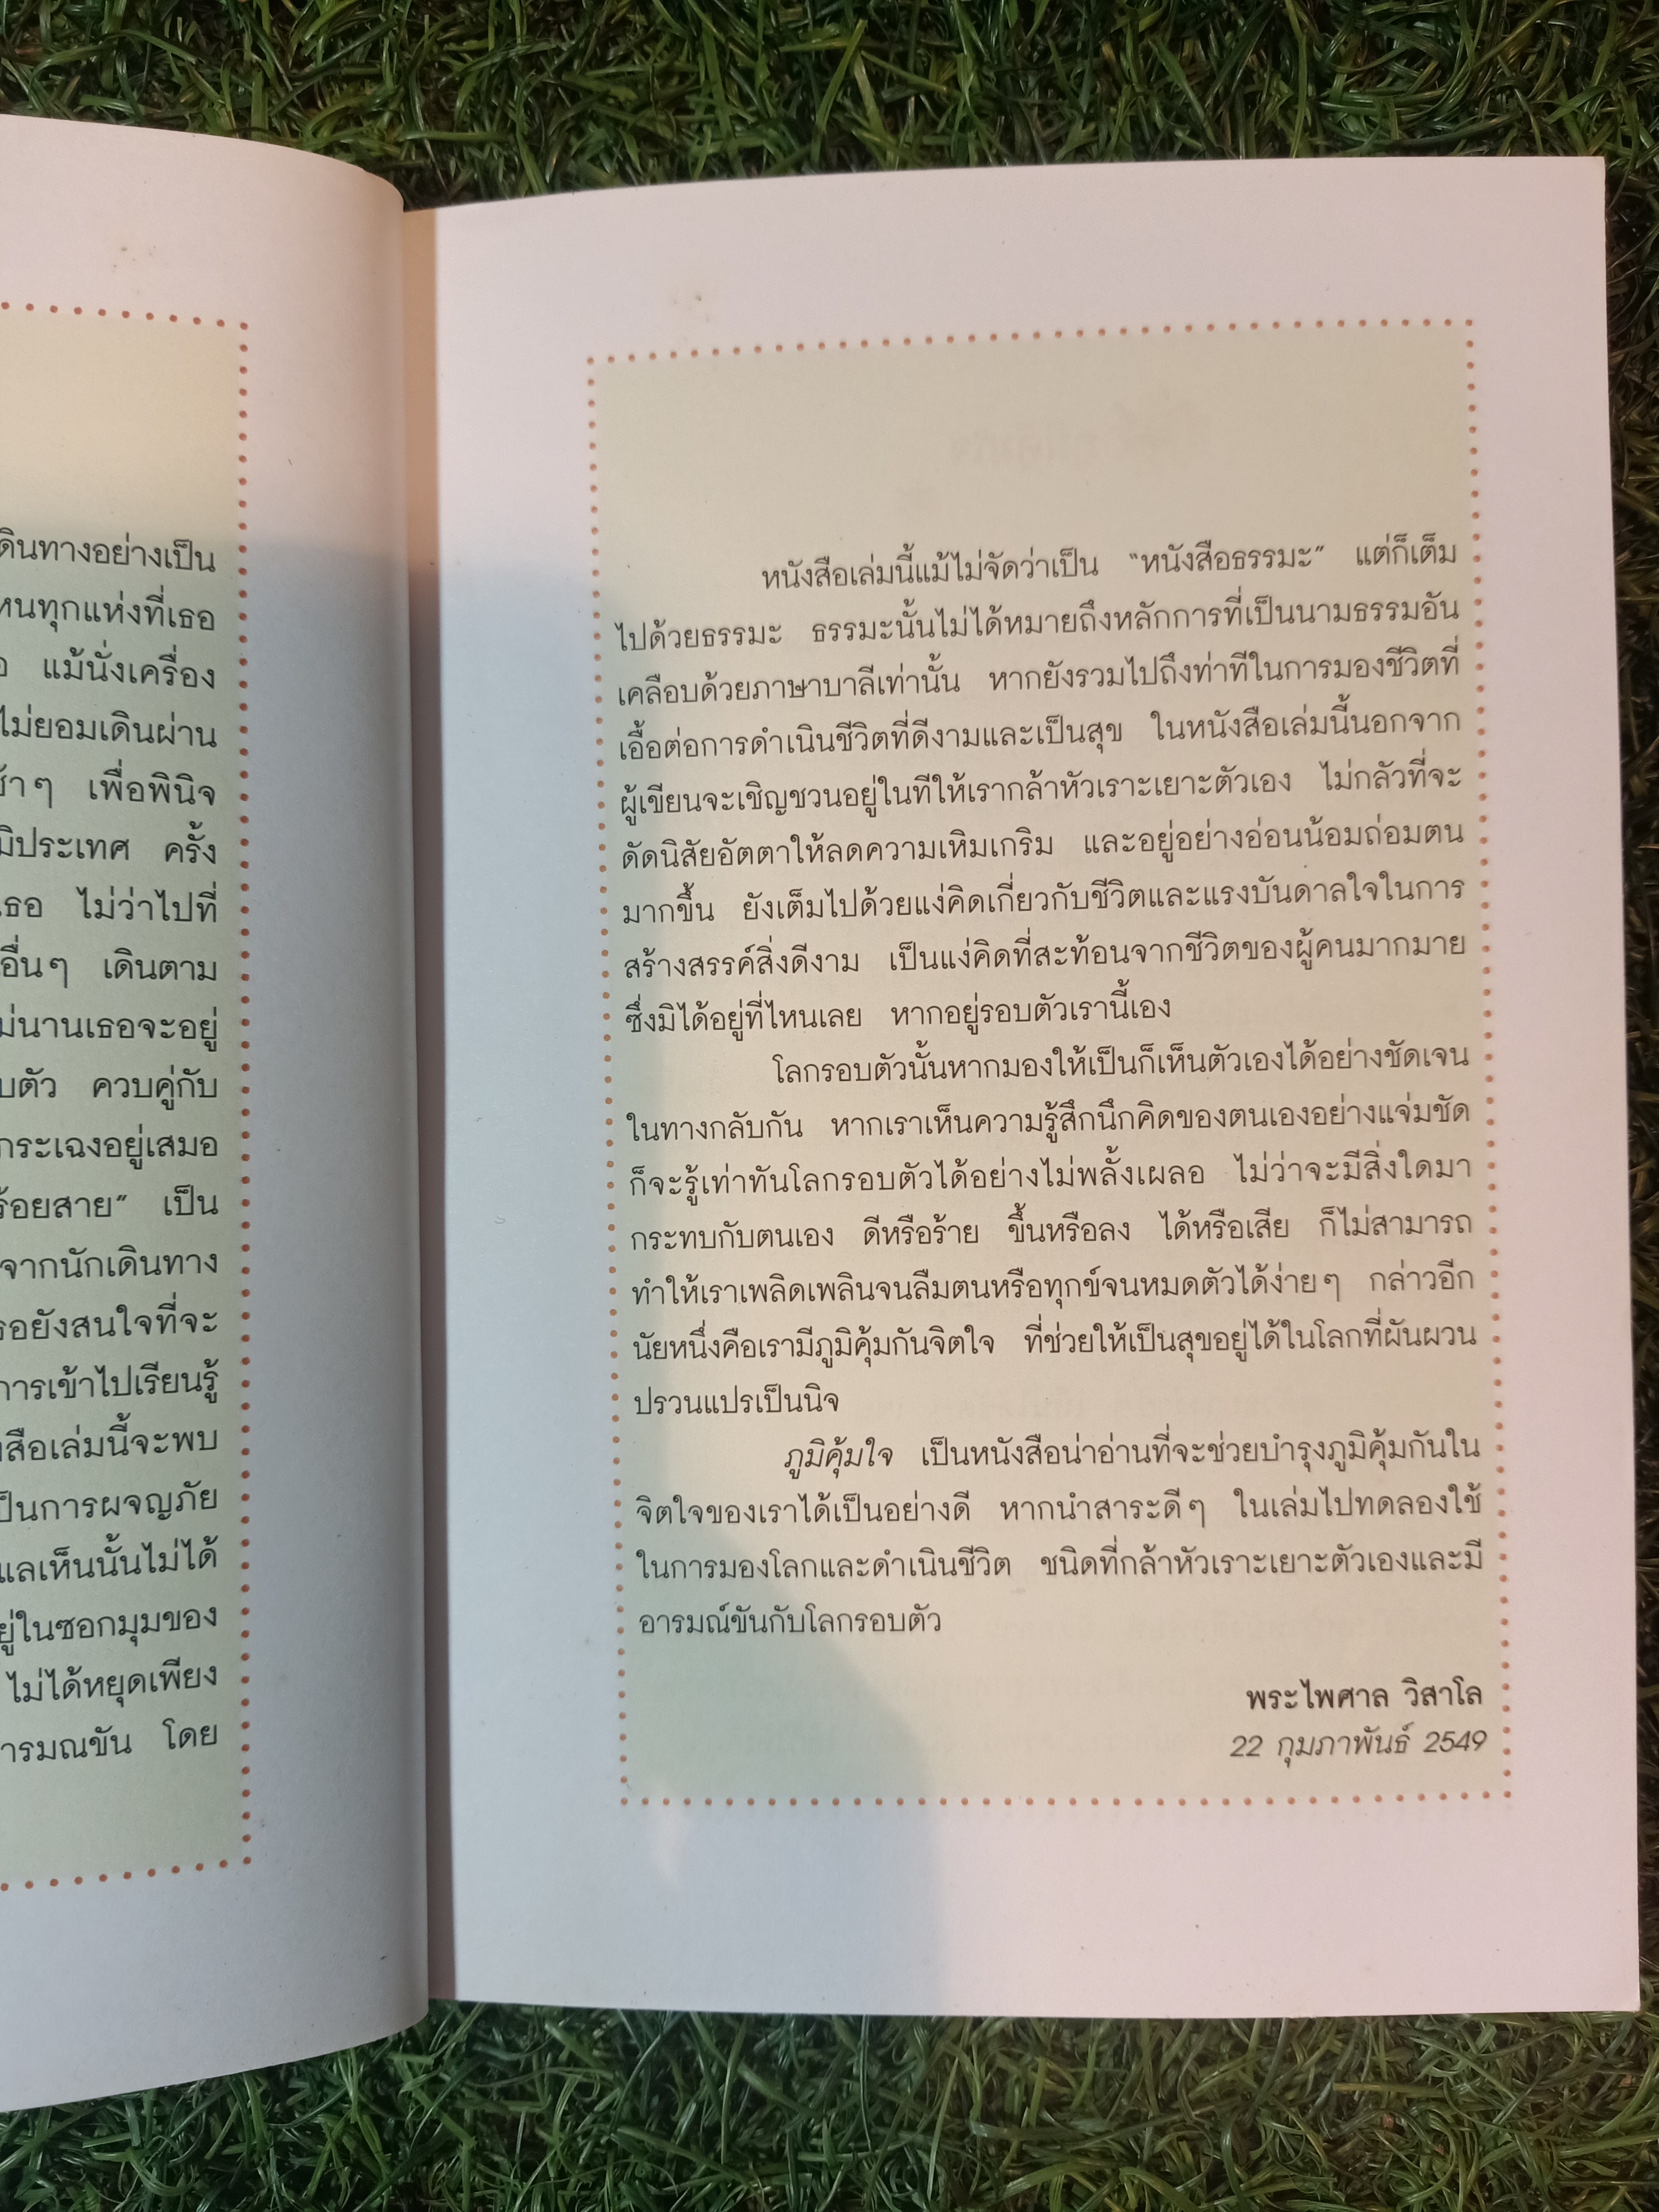 ดินทางอย่างเป็น
หนทุกแห่งที่เธอ
แม้นั่งเครื่อง
ไม่ยอมเดินผ่าน
เพื่อพินิจ
มิประเทศ ครั้ง
ธอ ไม่ว่าไปที่
อื่นๆ เดินตาม
ม่นานเธอจะอยู่
บตัว ควบคู่กับ
กระเฉงอยู่เสมอ
ร้อยสาย” เป็น
จากนักเดินทาง
รอยังสนใจที่จะ
การเข้าไปเรียนรู้
สือเล่มนี้จะพบ
ป็นการผจญภัย
แลเห็นนั้นไม่ได้
ยู่ในซอกมุมของ
ไม่ได้หยุดเพียง
ารมณขัน โดย
หนังสือเล่มนี้แม้ไม่จัดว่าเป็น “หนังสือธรรมะ” แต่ก็เต็ม
ไปด้วยธรรมะ ธรรมะนั้นไม่ได้หมายถึงหลักการที่เป็นนามธรรมอัน
เคลือบด้วยภาษาบาลีเท่านั้น หากยังรวมไปถึงท่าทีในการมองชีวิตที่
เอื้อต่อการดำเนินชีวิตที่ดีงามและเป็นสุข ในหนังสือเล่มนี้นอกจาก
ผู้เขียนจะเชิญชวนอยู่ในทีให้เรากล้าหัวเราะเยาะตัวเอง ไม่กลัวที่จะ
ดัดนิสัยอัตตาให้ลดความเหิมเกริม และอยู่อย่างอ่อนน้อมถ่อมตน
มากขึ้น ยังเต็มไปด้วยแง่คิดเกี่ยวกับชีวิตและแรงบันดาลใจในการ
สร้างสรรค์สิ่งดีงาม เป็นแง่คิดที่สะท้อนจากชีวิตของผู้คนมากมาย
ซึ่งมิได้อยู่ที่ไหนเลย หากอยู่รอบตัวเรานี้เอง
โลกรอบตัวนั้นหากมองให้เป็นก็เห็นตัวเองได้อย่างชัดเจน
ในทางกลับกัน หากเราเห็นความรู้สึกนึกคิดของตนเองอย่างแจ่มชัด
ก็จะรู้เท่าทันโลกรอบตัวได้อย่างไม่พลั้งเผลอ ไม่ว่าจะมีสิ่งใดมา
กระทบกับตนเอง ดีหรือร้าย ขึ้นหรือลง ได้หรือเสีย ก็ไม่สามารถ
ทำให้เราเพลิดเพลินจนลืมตนหรือทุกข์จนหมดตัวได้ง่ายๆ กล่าวอีก
นัยหนึ่งคือเรามีภูมิคุ้มกันจิตใจ ที่ช่วยให้เป็นสุขอยู่ได้ในโลกที่ผันผวน
ปรวนแปรเป็นนิจ
ภูมิคุ้มใจ เป็นหนังสือน่าอ่านที่จะช่วยบำรุงภูมิคุ้มกันใน
จิตใจของเราได้เป็นอย่างดี หากนำสาระดีๆ ในเล่มไปทดลองใช้
ในการมองโลกและดำเนินชีวิต ชนิดที่กล้าหัวเราะเยาะตัวเองและมี
อารมณ์ขันกับโลกรอบตัว
พระไพศาล วิสาโล
22 กุมภาพันธ์ 2549